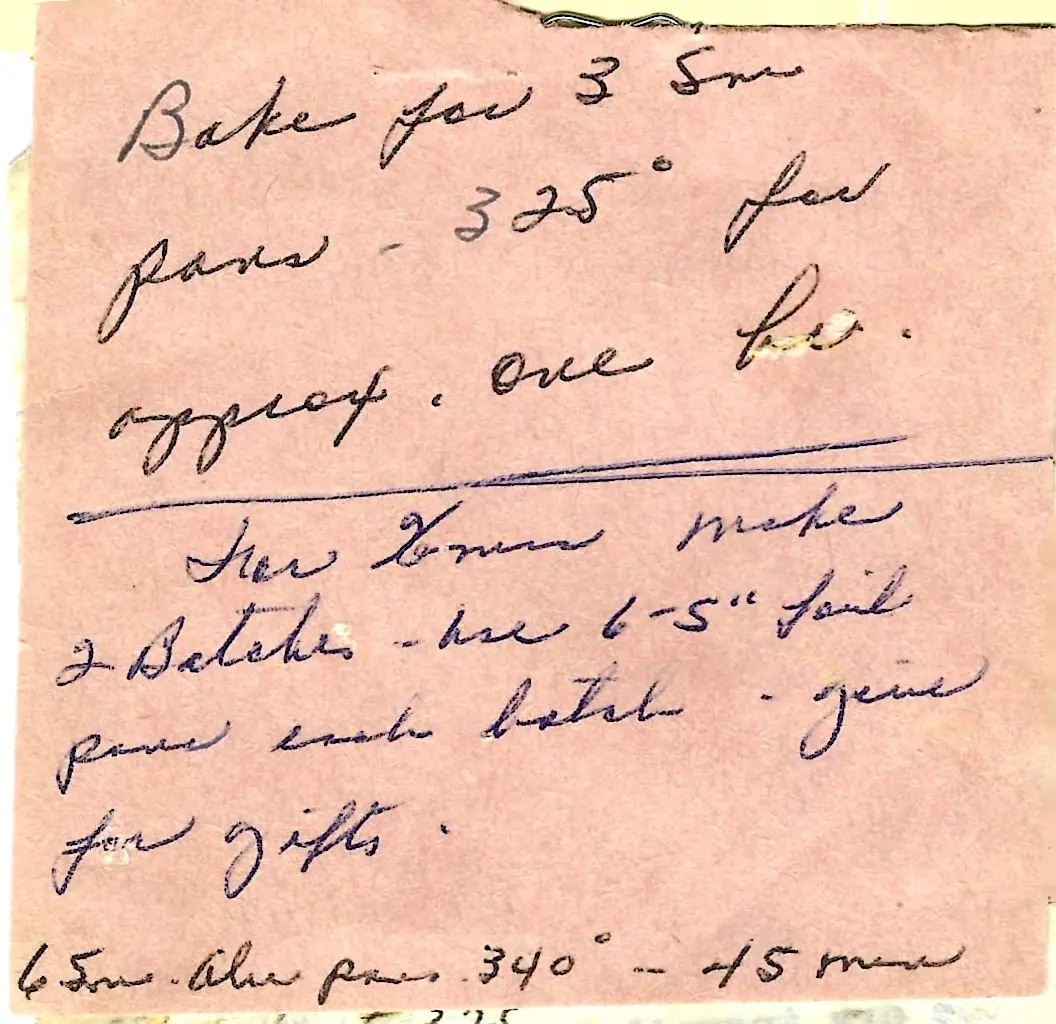 Bake for 3 Sm
pans - 325° for
approx. one hr.
For Xmas make
2 Batches - use 6-5" foil
pans each batch - give
for gifts.
6 Sm. Alu pans. 340° - 45 min
325